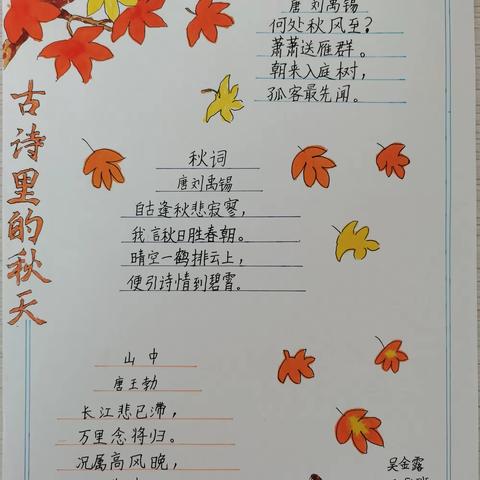 古诗里的秋天
唐 刘禹锡
何处秋风至？
萧萧送雁群。
朝来入庭树，
孤客最先闻。
秋词
唐刘禹锡
自古逢秋悲寂寥，
我言秋日胜春朝。
晴空一鹤排云上，
便引诗情到碧霄。
山中
唐王勃
长江悲已滞，
万里念将归。
况属高风晚，
吴金露